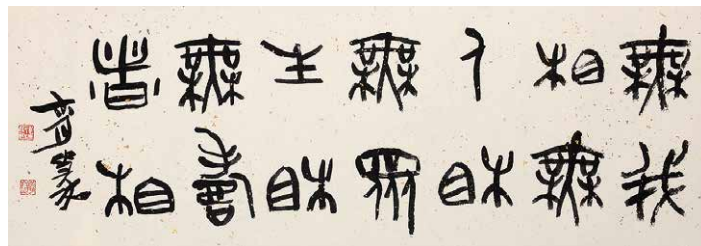 無我
相無
人相
無眾
生相
無壽
者相
篆